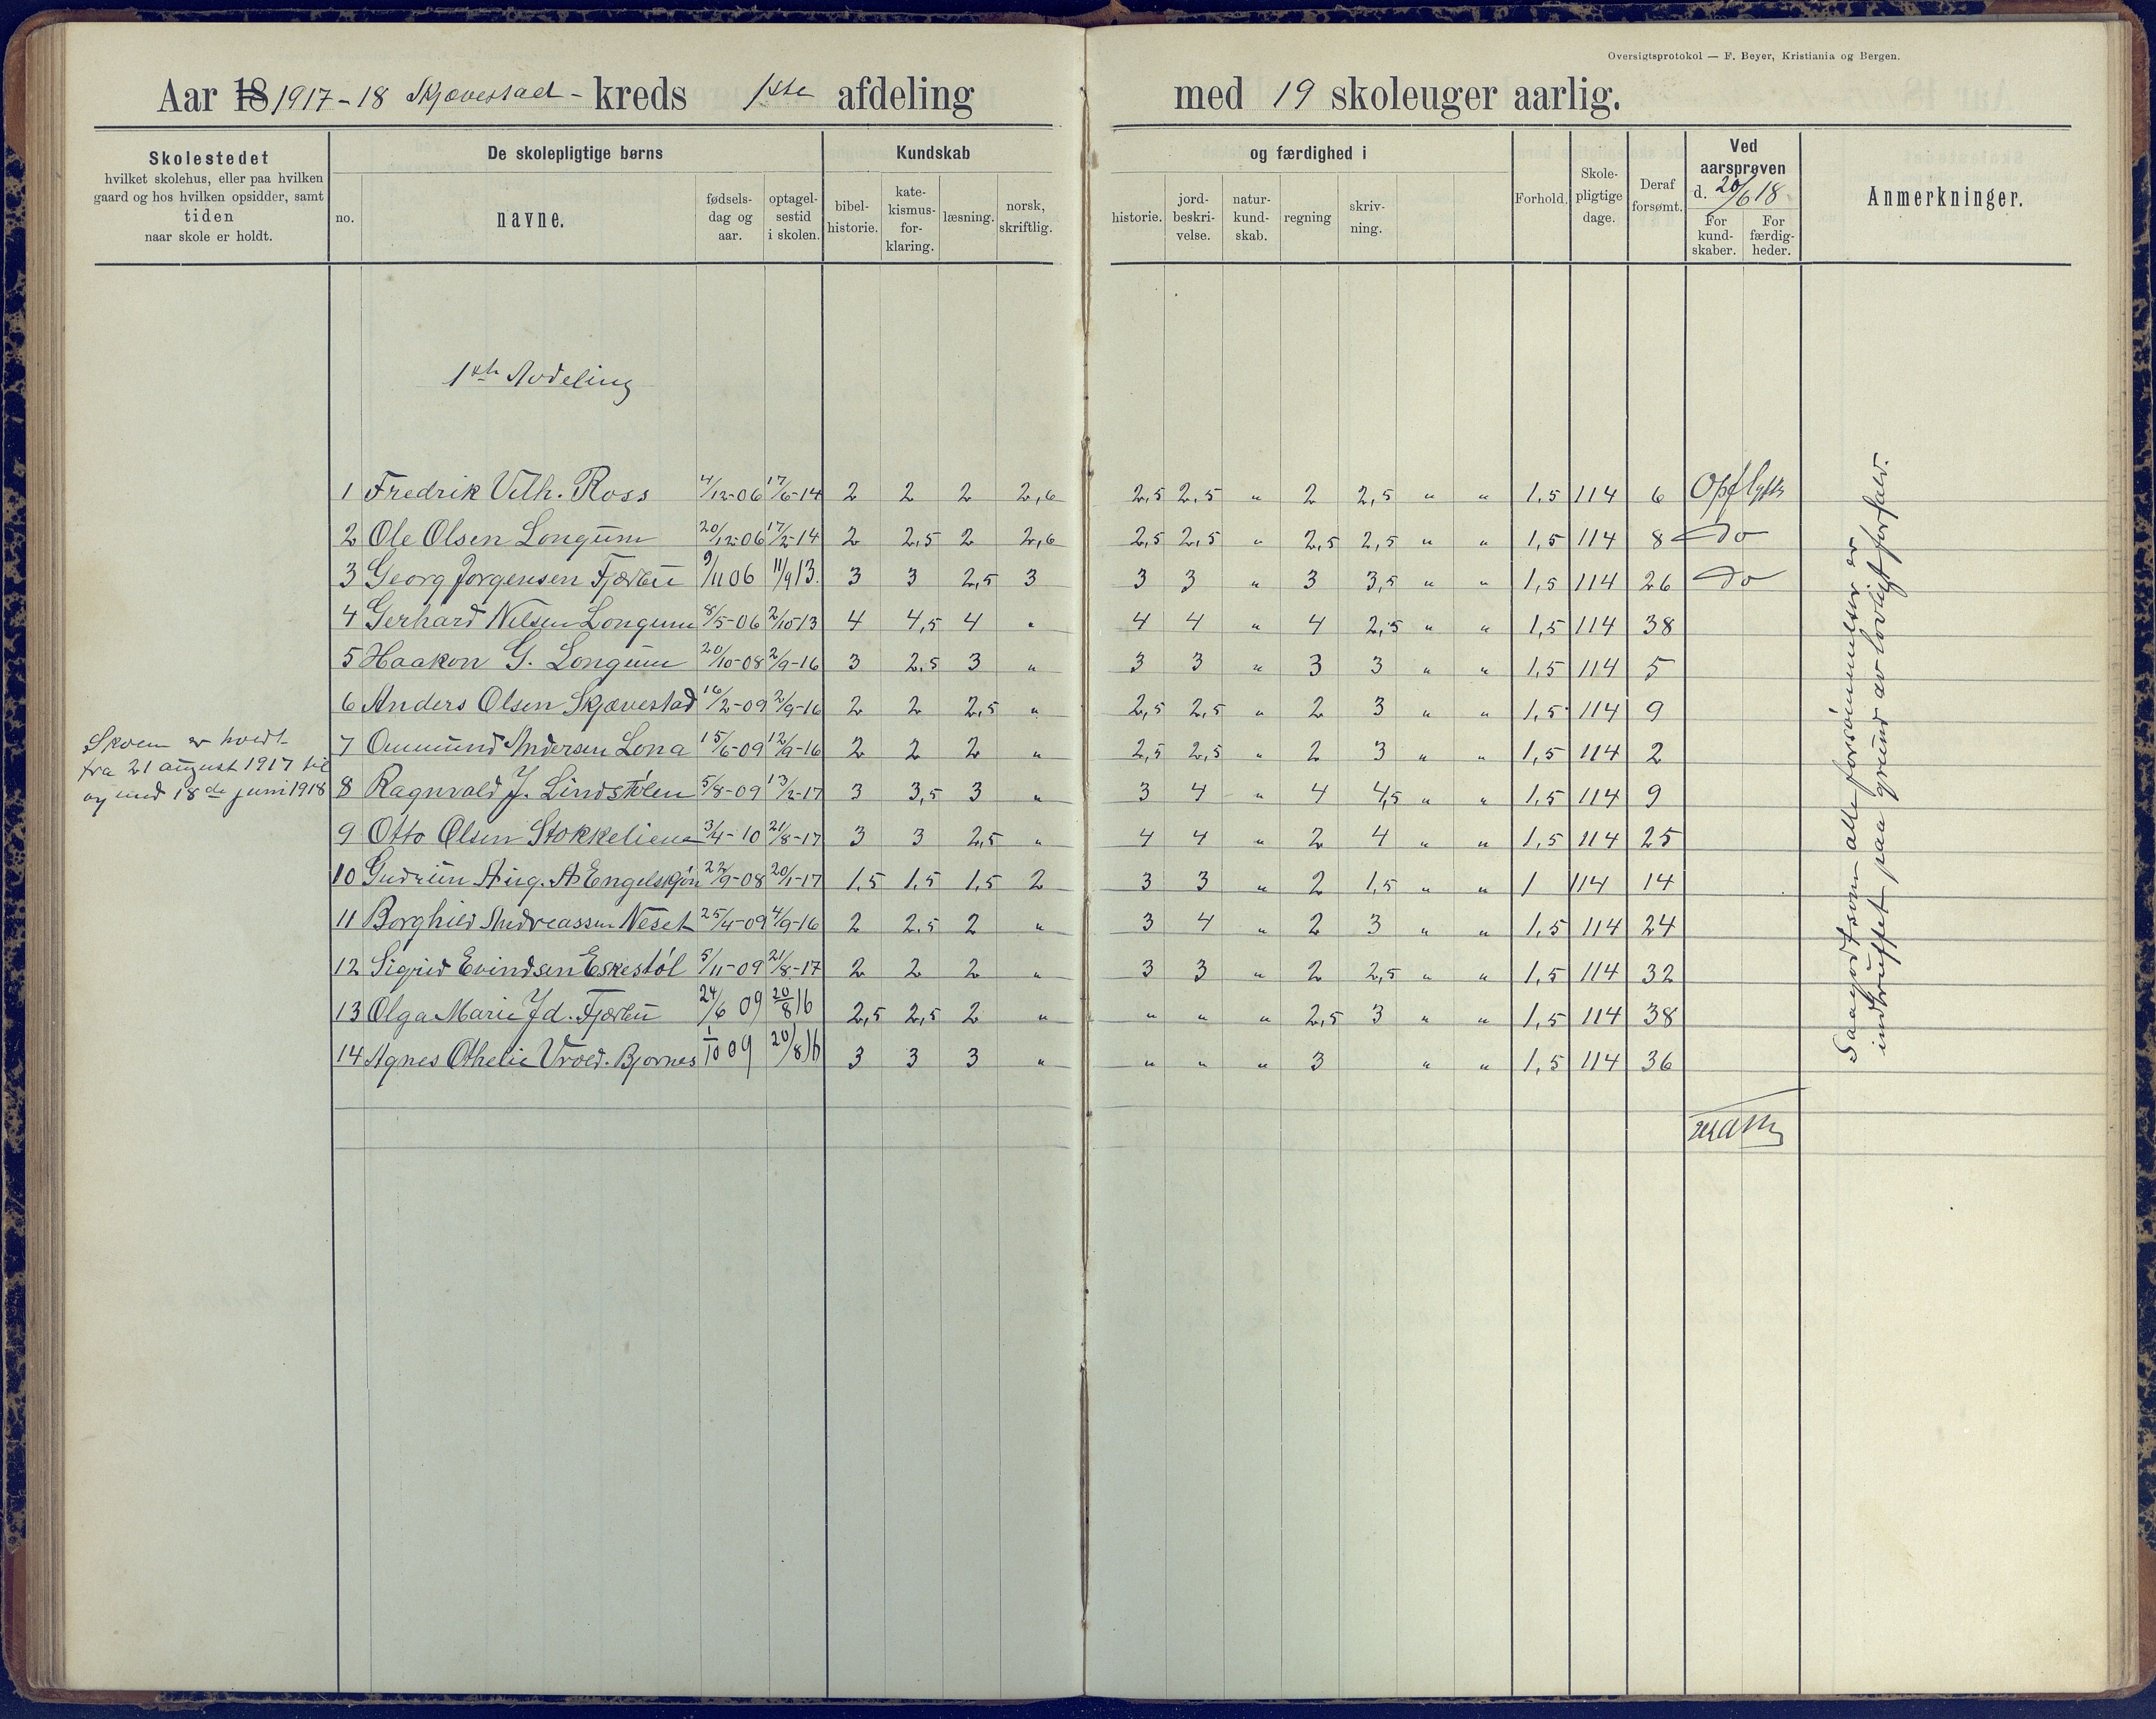 Oversigtsprotokol — F. Beyer, Kristiania og Bergen.
Aar 18 1917-18 Skjævestad - kreds 1ste afdeling med 19 skoleuger aarlig.
Skolestedet
hvilket skolehus, eller paa hvilken
gaard og hos hvilken opsidder, samt
tiden
naar skole er holdt.
De skolepligtige børns
no.
navne.
fødsels-
dag og
aar.
optagel-
sestid
i skolen.
Kundskab og færdighed i
bibel-
historie.
kate-
kismus-
for-
klaring.
læsning.
norsk,
skriftlig.
historie.
jord-
beskri-
velse.
natur-
kund-
skab.
regning
skriv-
ning.
Forhold.
Skole-
pligtige
dage.
Deraf
forsømt.
Ved
aarsprøven
d. 20/6 18
For
kund-
skaber.
For
færdig-
heder.
Anmerkninger.
1ste Avdeling
1 Fredrik Vilh. Ross 4/12-06 17/6-14 2 2 2 2,6 2,5 2,5 " 2 2,5 " " 1,5 114 6 Opflytt
2 Ole Olsen Longum 20/12-06 17/2-14 2 2,5 2 2,6 2,5 2,5 " 2,5 2,5 " " 1,5 114 8 do
3 Georg Jorgensen Fjærbu 9/11 06 11/9 13. 3 3 2,5 3 3 3 " 3 3,5 " " 1,5 114 26 do
4 Gerhard Nilsen Longum 8/5-06 2/10-13 4 4,5 4 " 4 4 " 4 2,5 " " 1,5 114 38
5 Haakon G. Longum 20/10-08 2/9-16 3 2,5 3 " 3 3 " 3 3 " " 1,5 114 5
6 Anders Olsen Skjævestad 16/2-09 2/9-16 2 2 2,5 " 2,5 2,5 " 2 3 " " 1,5 114 9
7 Ommund Andersen Lona 15/6-09 12/9-16 2 2 2 " 2,5 2,5 " 2 3 " " 1,5 114 2
8 Ragnvald J. Lindstølen 5/8-09 13/2-17 3 3,5 3 " 3 4 " 4 4,5 " " 1,5 114 9
9 Otto Olsen Stokkeliene 3/4-10 21/8-17 3 3 2,5 " 4 4 " 2 4 " " 1,5 114 25
10 Gudrun Aug. A Engelskjøn 22/9-08 20/1-17 1,5 1,5 1,5 2 3 3 " 2 1,5 " " 1 114 14
11 Borghild Andreassen Neset 25/4-09 4/9-16 2 2,5 2 " 3 4 " 2 3 " " 1,5 114 24
12 Sigrid Evindsen Eskestøl 5/11-09 21/8-17 2 2 2 " 3 3 " 2 2,5 " " 1,5 114 32
13 Olga Marie Jd. Fjærbu 24/6 09 20/8 16 2,5 2,5 2 " " " " 2,5 3 " " 1,5 114 38
14 Agnes Othelie Vrold. Bjornes 1/10 09 20/8 16 3 3 3 " " " " 3 " " 1,5 114 36
Skolen er holdt
fra 21 august 1917 til
og med 18de juni 1918
Saagodtsom alle forsömmelser er
indtruffet paa grund av lovligt forfald.